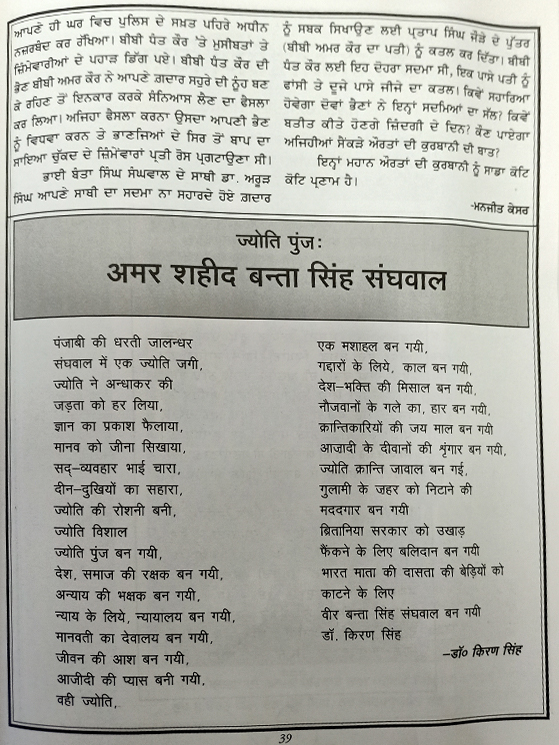 ਆਪਣੇ ਹੀ ਘਰ ਵਿਚ ਪੁਲਿਸ ਦੇ ਸਖ਼ਤ ਪਹਿਰੇ ਅਧੀਨ
ਨਜ਼ਰਬੰਦ ਕਰ ਰੱਖਿਆ। ਬੀਬੀ ਧੰਤ ਕੌਰ 'ਤੇ ਮੁਸੀਬਤਾਂ ਤੇ
ਜ਼ਿੰਮੇਵਾਰੀਆਂ ਦੇ ਪਹਾੜ ਡਿੱਗ ਪਏ। ਬੀਬੀ ਧੰਤ ਕੌਰ ਦੀ
ਭੈਣ ਬੀਬੀ ਅਮਰ ਕੌਰ ਨੇ ਆਪਣੇ ਗ਼ਦਾਰ ਸਹੁਰੇ ਦੀ ਨੂੰਹ ਬਣ
ਕੇ ਰਹਿਣ ਤੋਂ ਇਨਕਾਰ ਕਰਕੇ ਸੰਨਿਆਸ ਲੈਣ ਦਾ ਫੈਸਲਾ
ਕਰ ਲਿਆ। ਅਜਿਹਾ ਫੈਸਲਾ ਕਰਨਾ ਉਸਦਾ ਆਪਣੀ ਭੈਣ
ਨੂੰ ਵਿਧਵਾ ਕਰਨ ਤੇ ਭਾਣਜਿਆਂ ਦੇ ਸਿਰ ਤੋਂ ਬਾਪ ਦਾ
ਸਾਇਆ ਚੁੱਕਦ ਦੇ ਜ਼ਿੰਮੇਵਾਰਾਂ ਪ੍ਰਤੀ ਰੋਸ ਪ੍ਰਗਟਾਉਣਾ ਸੀ।
ਭਾਈ ਬੰਤਾ ਸਿੰਘ ਸੰਘਵਾਲ ਦੇ ਸਾਥੀ ਡਾ. ਅਰੂੜ
ਸਿੰਘ ਆਪਣੇ ਸਾਥੀ ਦਾ ਸਦਮਾ ਨਾ ਸਹਾਰਦੇ ਹੋਏ ਗ਼ਦਾਰ
ਨੂੰ ਸਬਕ ਸਿਖਾਉਣ ਲਈ ਪ੍ਰਤਾਪ ਸਿੰਘ ਜੌੜੇ ਦੇ ਪੁੱਤਰ
(ਬੀਬੀ ਅਮਰ ਕੌਰ ਦਾ ਪਤੀ) ਨੂੰ ਕਤਲ ਕਰ ਦਿੱਤਾ। ਬੀਬੀ
ਧੰਤ ਕੌਰ ਲਈ ਇਹ ਦੋਹਰਾ ਸਦਮਾ ਸੀ, ਇਕ ਪਾਸੇ ਪਤੀ ਨੂੰ
ਫਾਂਸੀ ਤੇ ਦੂਜੇ ਪਾਸੇ ਜੀਜੇ ਦਾ ਕਤਲ। ਕਿਵੇਂ ਸਹਾਰਿਆ
ਹੋਵੇਗਾ ਦੋਵਾਂ ਭੈਣਾਂ ਨੇ ਇਨ੍ਹਾਂ ਸਦਮਿਆਂ ਦਾ ਸੱਲ? ਕਿਵੇਂ
ਬਤੀਤ ਕੀਤੇ ਹੋਣਗੇ ਜ਼ਿੰਦਗੀ ਦੇ ਦਿਨ? ਕੌਣ ਪਾਏਗਾ
ਅਜਿਹੀਆਂ ਸੈਂਕੜੇ ਔਰਤਾਂ ਦੀ ਕੁਰਬਾਨੀ ਦੀ ਬਾਤ?
ਇਨ੍ਹਾਂ ਮਹਾਨ ਔਰਤਾਂ ਦੀ ਕੁਰਬਾਨੀ ਨੂੰ ਸਾਡਾ ਕੋਟਿ
ਕੋਟਿ ਪ੍ਰਣਾਮ ਹੈ।
-ਮਨਜੀਤ ਕੇਸਰ
ज्योति पुंजः
अमर शहीद बन्ता सिंह संघवाल
पंजाबी की धरती जालन्धर
संघवाल में एक ज्योति जगी,
ज्योति ने अन्धाकर की
जड़ता को हर लिया,
ज्ञान का प्रकाश फैलाया,
मानव को जीना सिखाया,
सद्-व्यवहार भाई चारा,
दीन-दुखियों का सहारा,
ज्योति की रोशनी बनी,
ज्योति विशाल
ज्योति पुंज बन गयी,
देश, समाज की रक्षक बन गयी,
अन्याय की भक्षक बन गयी,
न्याय के लिये, न्यायालय बन गयी,
मानवती का देवालय बन गयी,
जीवन की आश बन गयी,
आजीदी की प्यास बनी गयी,
वही ज्योति,
एक मशाहल बन गयी,
गद्दारों के लिये, काल बन गयी,
देश-भक्ति की मिसाल बन गयी,
नौजवानों के गले का, हार बन गयी,
क्रान्तिकारियों की जय माल बन गयी
आजादी के दीवानों की शृंगार बन गयी,
ज्योति क्रान्ति जावाल बन गई,
गुलामी के जहर को निटाने की
मददगार बन गयी
ब्रितानिया सरकार को उखाड़
फैंकने के लिए बलिदान बन गयी
भारत माता की दासता की बेड़ियों को
काटने के लिए
वीर बन्ता सिंह संघवाल बन गयी
डॉ. किरण सिंह
–डॉ० किरण सिंह
39